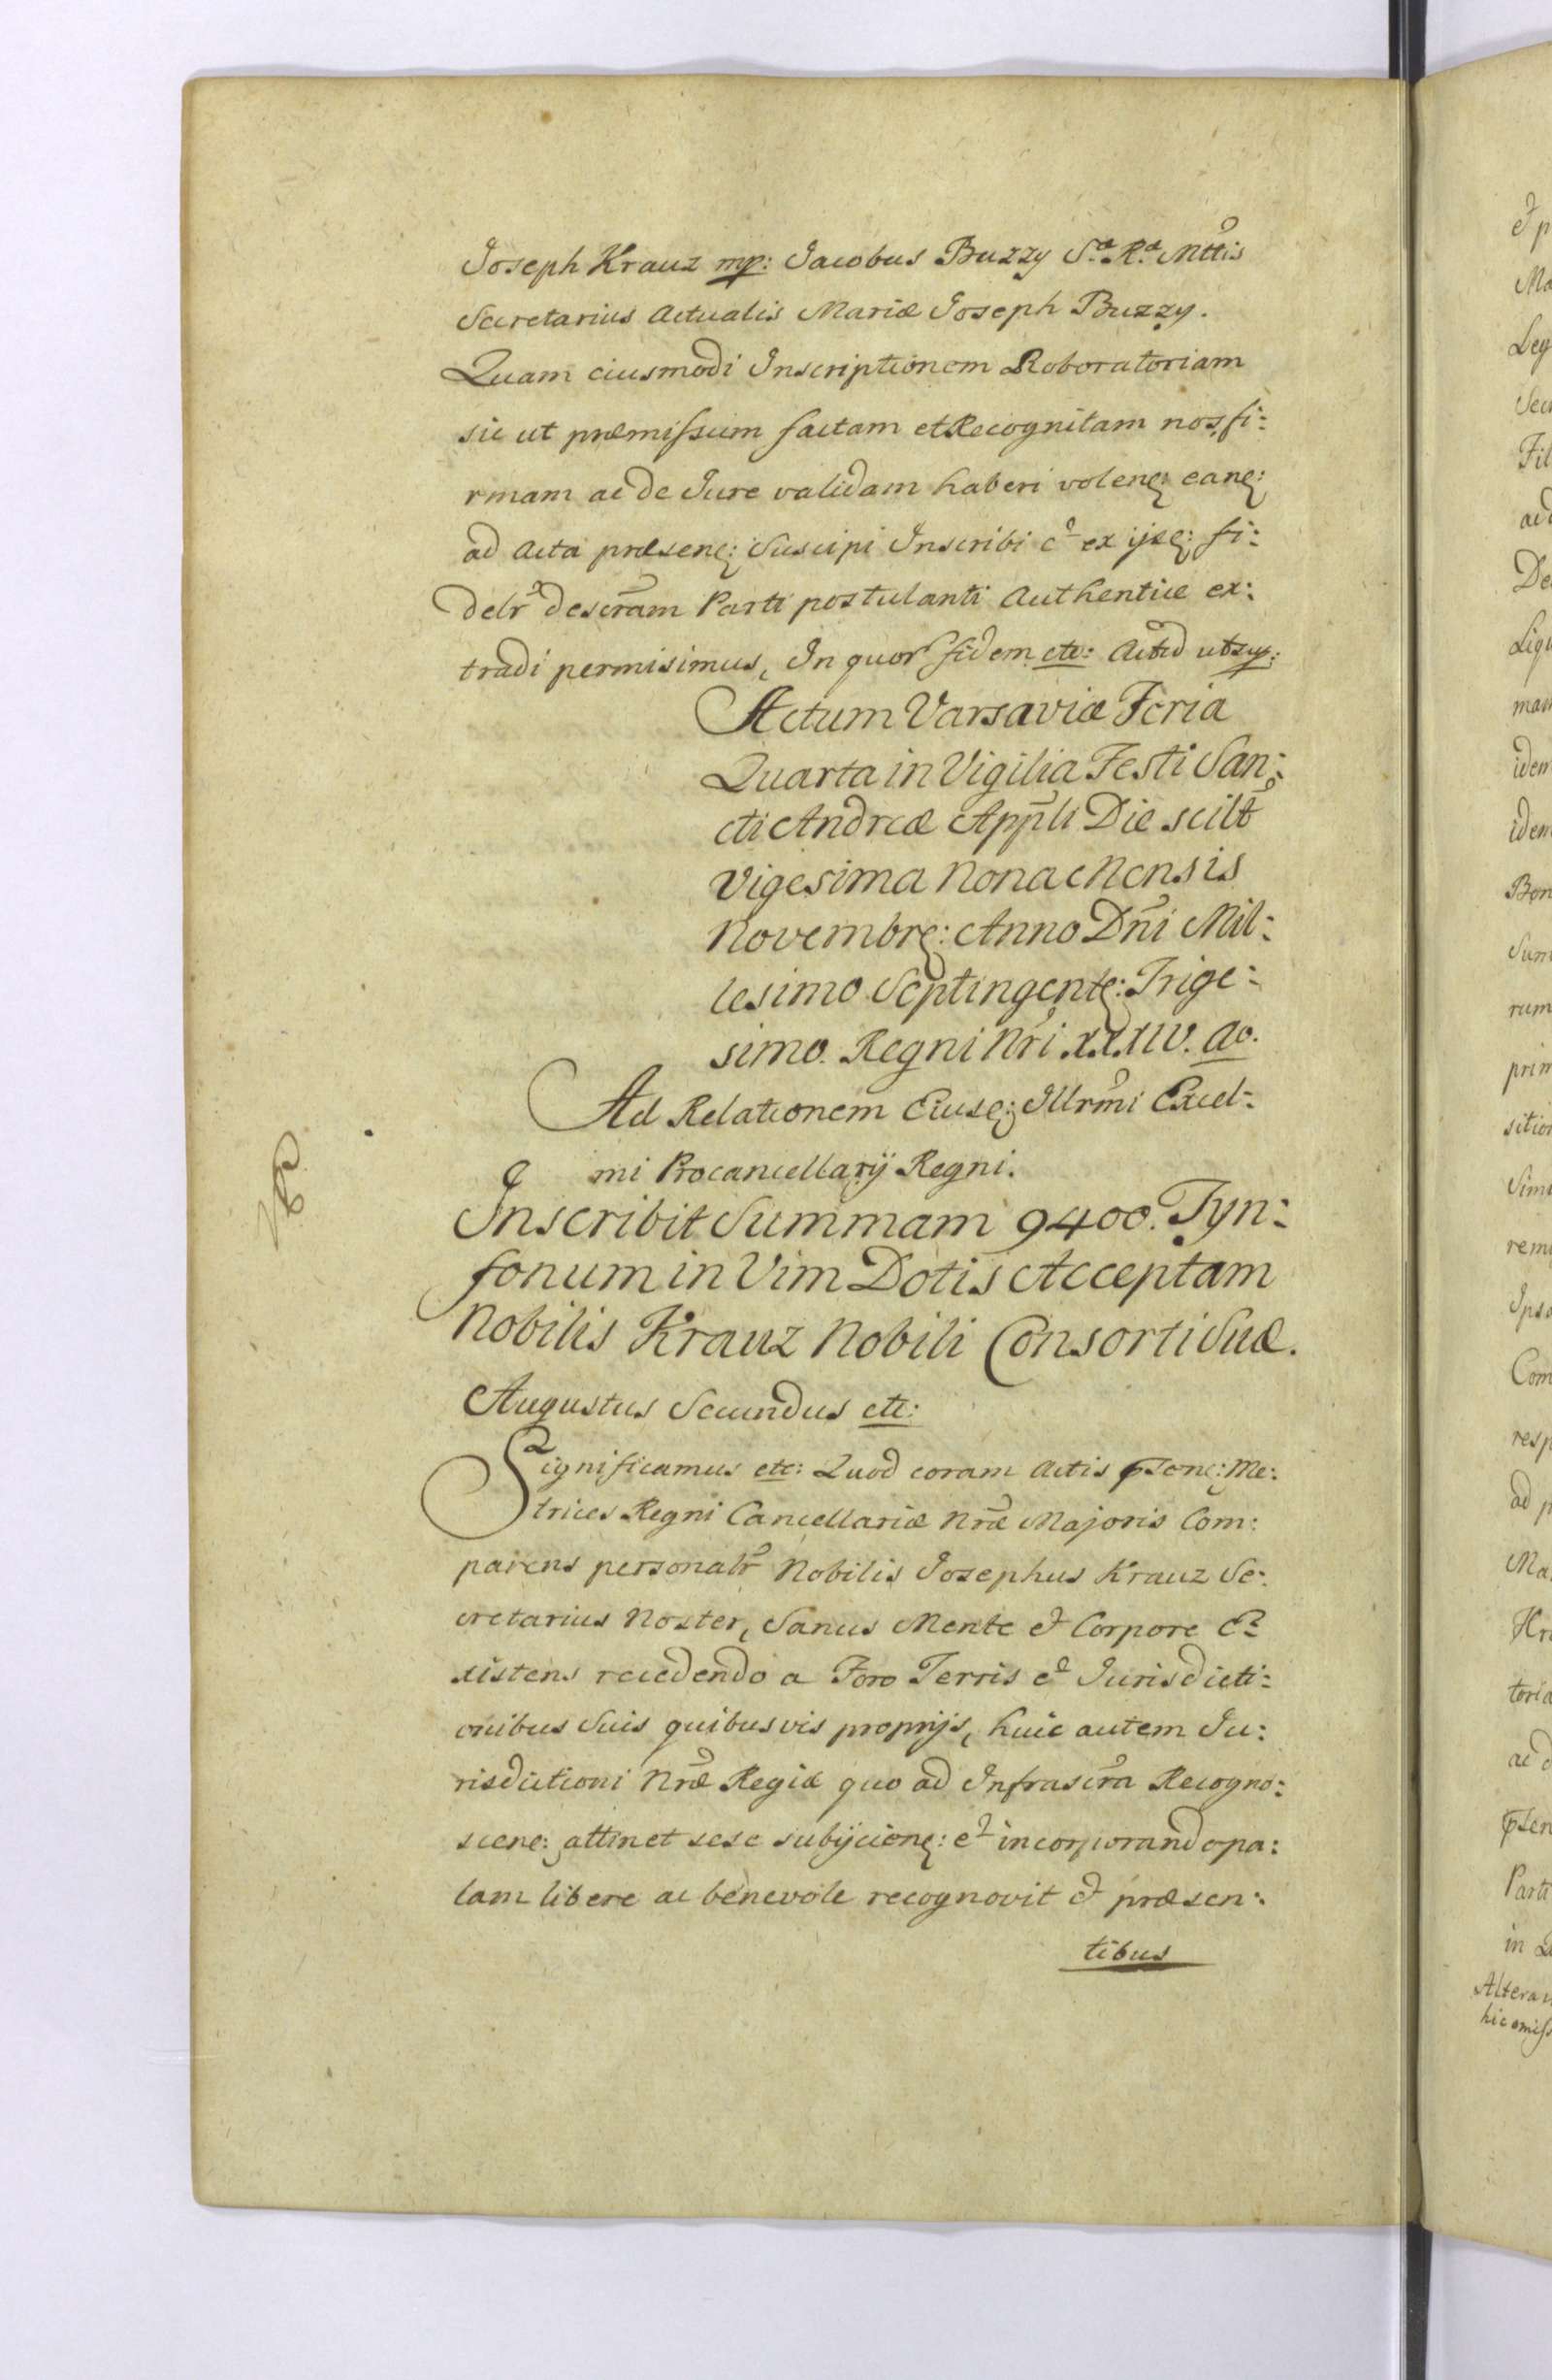 Joseph Krauz mp: Jacobus Buzzy S.æ R.æ Mttis
Secretarius Actualis Mariæ Joseph Buzzy.
Quam eiusmodi Inscriptionem Roboratoriam
sic ut præmissum factam et Recognitam nos fi:
rmam ac de Jure validam haberi volenę: eanę:
ad Acta præsenę: Suscipi Inscribi et ex ijsę: fi:
delr descram Parti postulanti Authentice ex:
tradi permisimus, In quor fidem etc: Actũ ut sup:
Actum Varsaviæ Feria
Quarta in Vigilia Festi San:
cti Andreæ Appli Die scilt
Vigesima Nona Mensis
Novembrę: Anno Dni Mil:
lesimo Septingentę: Trige:
simo. Regni Nri XXXIV. ao.
Ad Relationem Eiusę: Illrmi Excel:
mi Procancellarij Regni.
Inscribit Summam 9400. Tyn:
fonum in Vim Dotis Acceptam
Nobilis Krauz Nobili Consorti Suæ.
Augustus Secundus etc:
Significamus etc: Quod coram Actis psenę: Me:
trices Regni Cancellariæ Nræ Majoris Com:
parens personalr Nobilis Josephus Krauz Se:
cretarius Noster, Sanus Mente et Corpore E:
xistens recedendo a Foro Terris et Jurisdicti:
onibus Suis quibusvis proprijs, huic autem Ju:
risdictioni Nræ Regiæ quo ad Infrascra Recogno:
scenę: attinet sese subijcienę: et incorporando pa:
lam libere ac benevole recognovit et præsen:
tibus